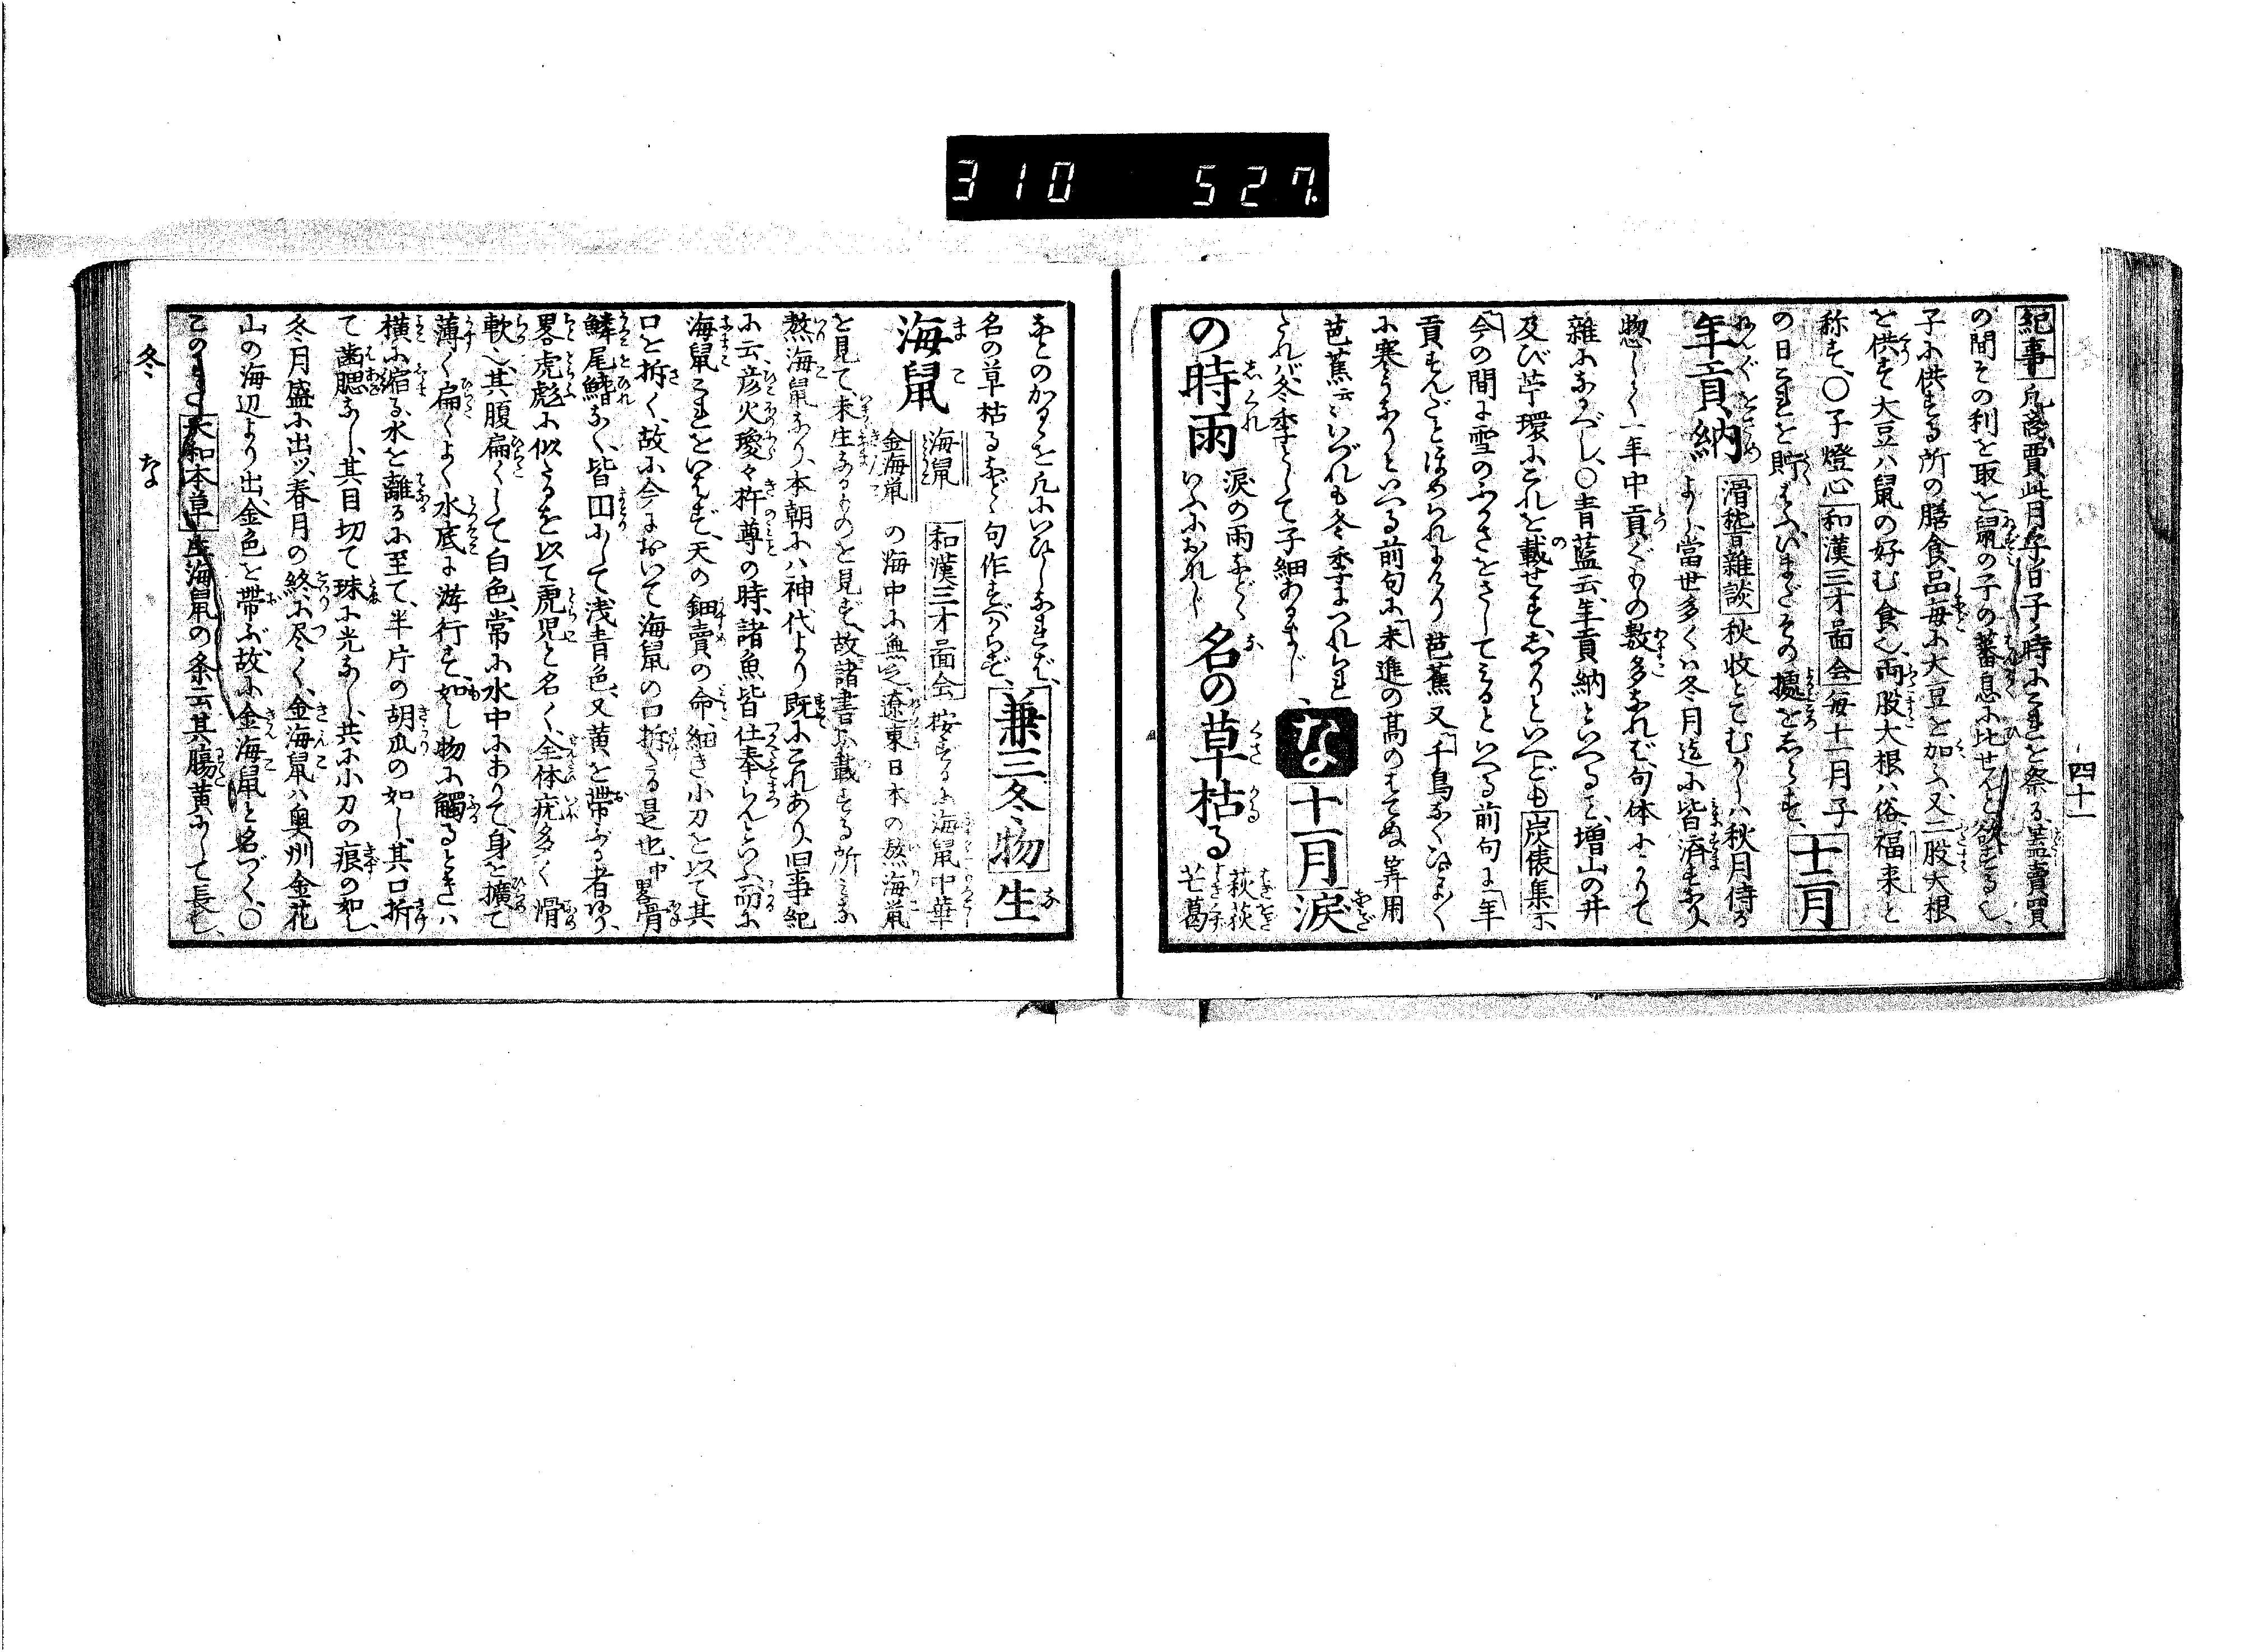 310 527
四十一
紀事 凡商賈此月子日子ノ時にこれを祭る、蓋賣買
の間その利を取を鼠の子の蕃息に比せんと欲する也、
子に供する所の膳食、品毎に大豆を加ふ、又二股大根
を供す大豆ハ鼠の好む食也、両股大根ハ俗、福来と
称す、〇子燈心 和漢三才啚会 毎十一月子 十一月
の日これを貯ふ、いまだその據をしらず、
年貢納 滑稽雑談 秋收とてむかしハ秋月侍る
よし當世多くハ冬月迄に皆済すなり
惣じて一年中貢ぐもの数多なれば、句体によりて
雑になるべし、〇青藍云、年貢納といへる、増山の井
及び苧環にこれを載せず、しかりといへども 炭俵集 に
今の間に雪のふかさをさしてみるといへる前句に年
貢すんだとほめられにけり 芭蕉 又、千鳥なく
に寒うなりといへる前句に、未進の高のはてぬ筭用
芭蕉 云云いづれも冬季につれられ
たれバ冬季として子細あるまじ な 十一月 涙
の時雨 涙の雨など いふにおなじ 名の草枯る 萩荻 芒葛
などのかるを凡にいひしなれば、
名の草枯るなど句作すべからず、 兼三冬物 生
海鼠 海鼠 金海鼠 和漢三才啚会 按ずるに海鼠中華
の海中に無之、遼東日本の熬海鼠
を見て未生なるものを見ず、故諸書に載する所みな
熬海鼠なり、本朝にハ神代より既にこれあり、旧事紀
に云、彦火瓊々杵尊の時、諸魚皆仕奉らんといふ、而に
海鼠これをいはず、天の鈿賣の命細き小刀を以て其
口を拆く、故に今において海鼠の口拆くる是也、中畧 骨
鱗尾鰭なく、皆団にして浅青色、又黄を帯ふる者あり、
畧虎彪に似るを以て虎児と名く、全体疣多く滑
軟也、其腹扁くして白色、常に水中にありて、身を擴て
薄く扁くよく水底に游行す、如し物に觸るときハ
横に縮る、水を離るに至て、半片の胡瓜の如し、其口拆
て歯腮なし、其目切て珠に光なし、共に小刀の痕の如し、
冬月盛に出ツ、春月の終に尽く、金海鼠ハ奥州金花
山の海辺より出、金色を帯ぶ、故に金海鼠と名づく、〇
このわた 大和本草 生海鼠の条云其腸黄にして長し、
冬 な